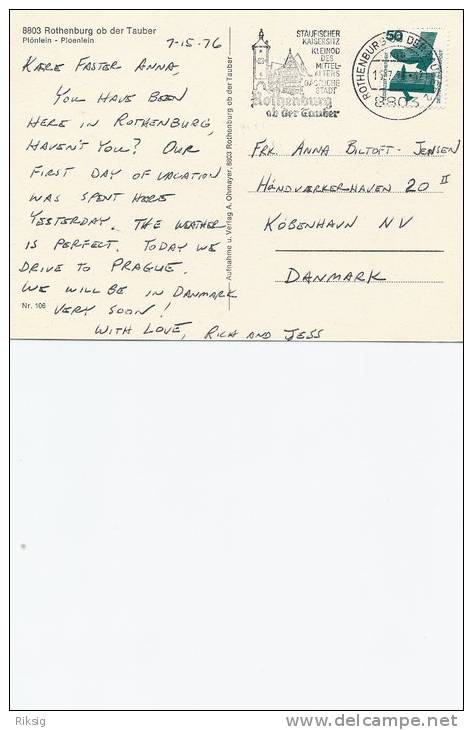 8803 Rothenburg ob der Tauber
Plönlein - Ploenlein
7-15-76
KÆRE FASTER ANNA,
YOU HAVE BEEN
HERE IN ROTHENBURG,
HAVEN'T YOU? OUR
FIRST DAY OF VACATION
WAS SPENT HERE
YESTERDAY. THE WEATHER
IS PERFECT. TODAY WE
DRIVE TO PRAGUE.
WE WILL BE IN DANMARK
VERY SOON!
WITH LOVE, RICH AND JESS
Nr. 106
Aufnahme u. Verlag A. Ohmayer, 8803 Rothenburg ob der Tauber
STAUFISCHER
KAISERSITZ
KLEINOD
DES
MITTEL-
ALTERS
STADT
Rothenburg
ob der Tauber
ROTHENBURG OB DER
8803
50
FRK. ANNA BILTOFT-JENSEN
HÅNDVÆRKERHAVEN 20 II
KÖBENHAVN NV
DANMARK
Riksig